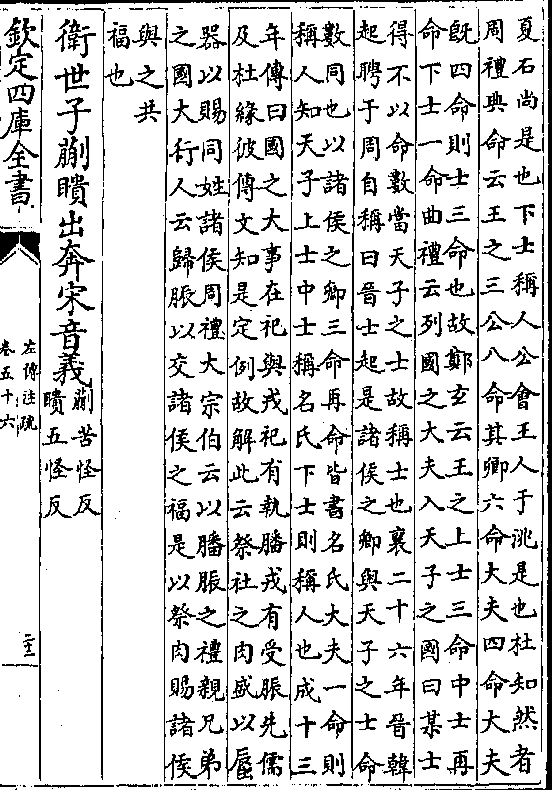 夏石尚是也下士稱人公會王人于洮是也杜知然者
周禮典命云王之三公八命其卿六命大夫四命大夫
旣四命則士三命也故鄭玄云王之上士三命中士再
命下士一命曲禮云列國之大夫入天子之國曰某士
得不以命數當天子之士故稱士也襄二十六年晉韓
起聘于周自稱曰晉士起是諸侯之卿與天子之士命
數同也以諸侯之卿三命再命皆書名氏大夫一命則
稱人知天子上士中士稱名氏下士則稱人也成十三
年傳曰國之大事在祀與戎祀有執膰戎有受脤先儒
及杜緣彼傳文知是定例故解此云祭社之肉盛以蜃
器以賜同姓諸侯周禮大宗伯云以膰脤之禮親兄弟
之國大行人云歸脤以交諸侯之福是以祭肉賜諸侯
與之共
福也
衛世子蒯聵出奔宋音義
蒯苦怪反
聵五怪反
欽定四庫全書
左傳注疏
卷五十六